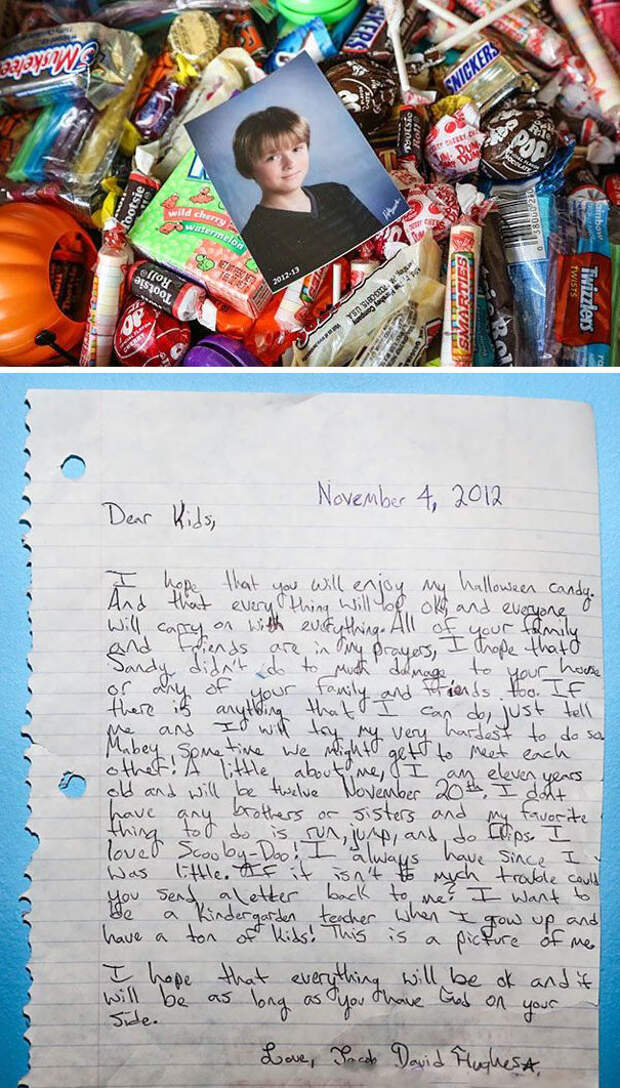 3 Musketee
SNICKERS
SNICKERS
Tootsie Roll
DUM DUM
POP
wild cherry
watermelon
2012-13
Tootsie Roll
SMARTIES
Twizzlers
TWISTS
rainbow
November 4, 2012
Dear Kids,
I hope that you will enjoy my halloween candy.
And that every thing will be ok, and everyone
will carry on with everything. All of your family
and friends are in my prayers, I hope that
Sandy didn't do to much damage to your house
or any of your family and friends too. If
there is anything that I can do, just tell
me and I will try my very hardest to do so
Mabey sometime we might get to meet each
other! A little about me, I am eleven years
old and will be twelve November 20th. I dont
have any brothers or sisters and my favorite
thing to do is run, jump, and do flips. I
love Scooby-Doo! I always have since I
was little. If it isn't to much trouble could
you send a letter back to me? I want to
be a kindergarden teacher when I grow up and
have a ton of kids! This is a picture of me.
I hope that everything will be ok and it
will be as long as you have God on your
side.
Love, Jacob David Hughes